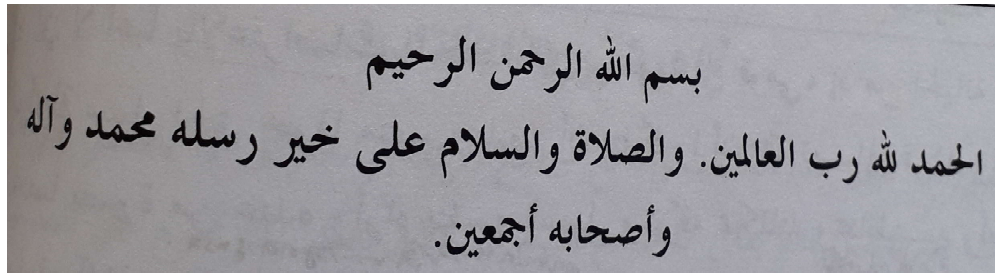 بسم الله الرحمن الرحيم
الحمد لله رب العالمين. والصلاة والسلام على خير رسله محمد وآله
وأصحابه أجمعين.